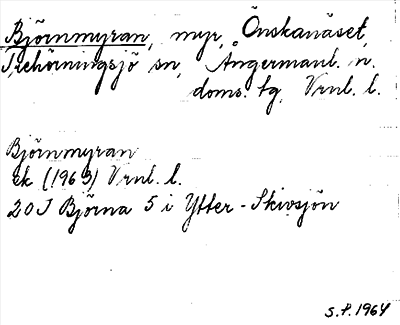 Björnmyran, myr, Önskanäset,
Trehörningsjö sn, Ångermanl. n.
doms. tg, Vrnl. l.
Björnmyran
ek (1963) Vrnl. l.
20 J Björna 5 i Ytter-Skivsjön
S.F. 1964